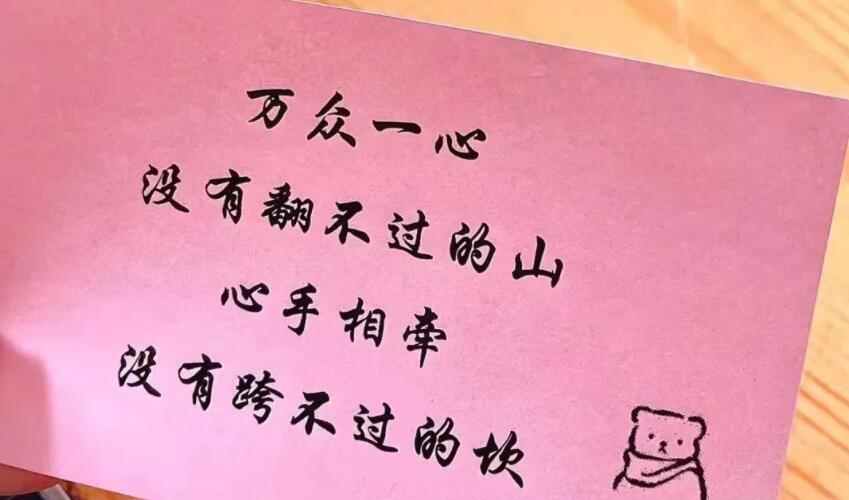 万众一心
没有翻不过的山
心手相牵
没有跨不过的坎